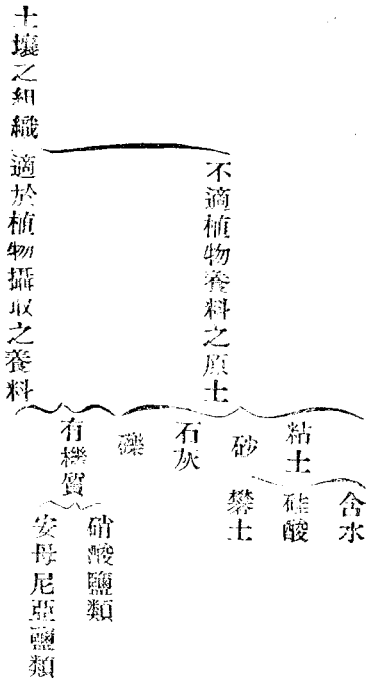 土壤之組織
不適植物養料之原土
粘土
含水
硅酸
礬土
砂
石灰
礫
適於植物攝取之養料
有機質
硝酸鹽類
安母尼亞鹽類